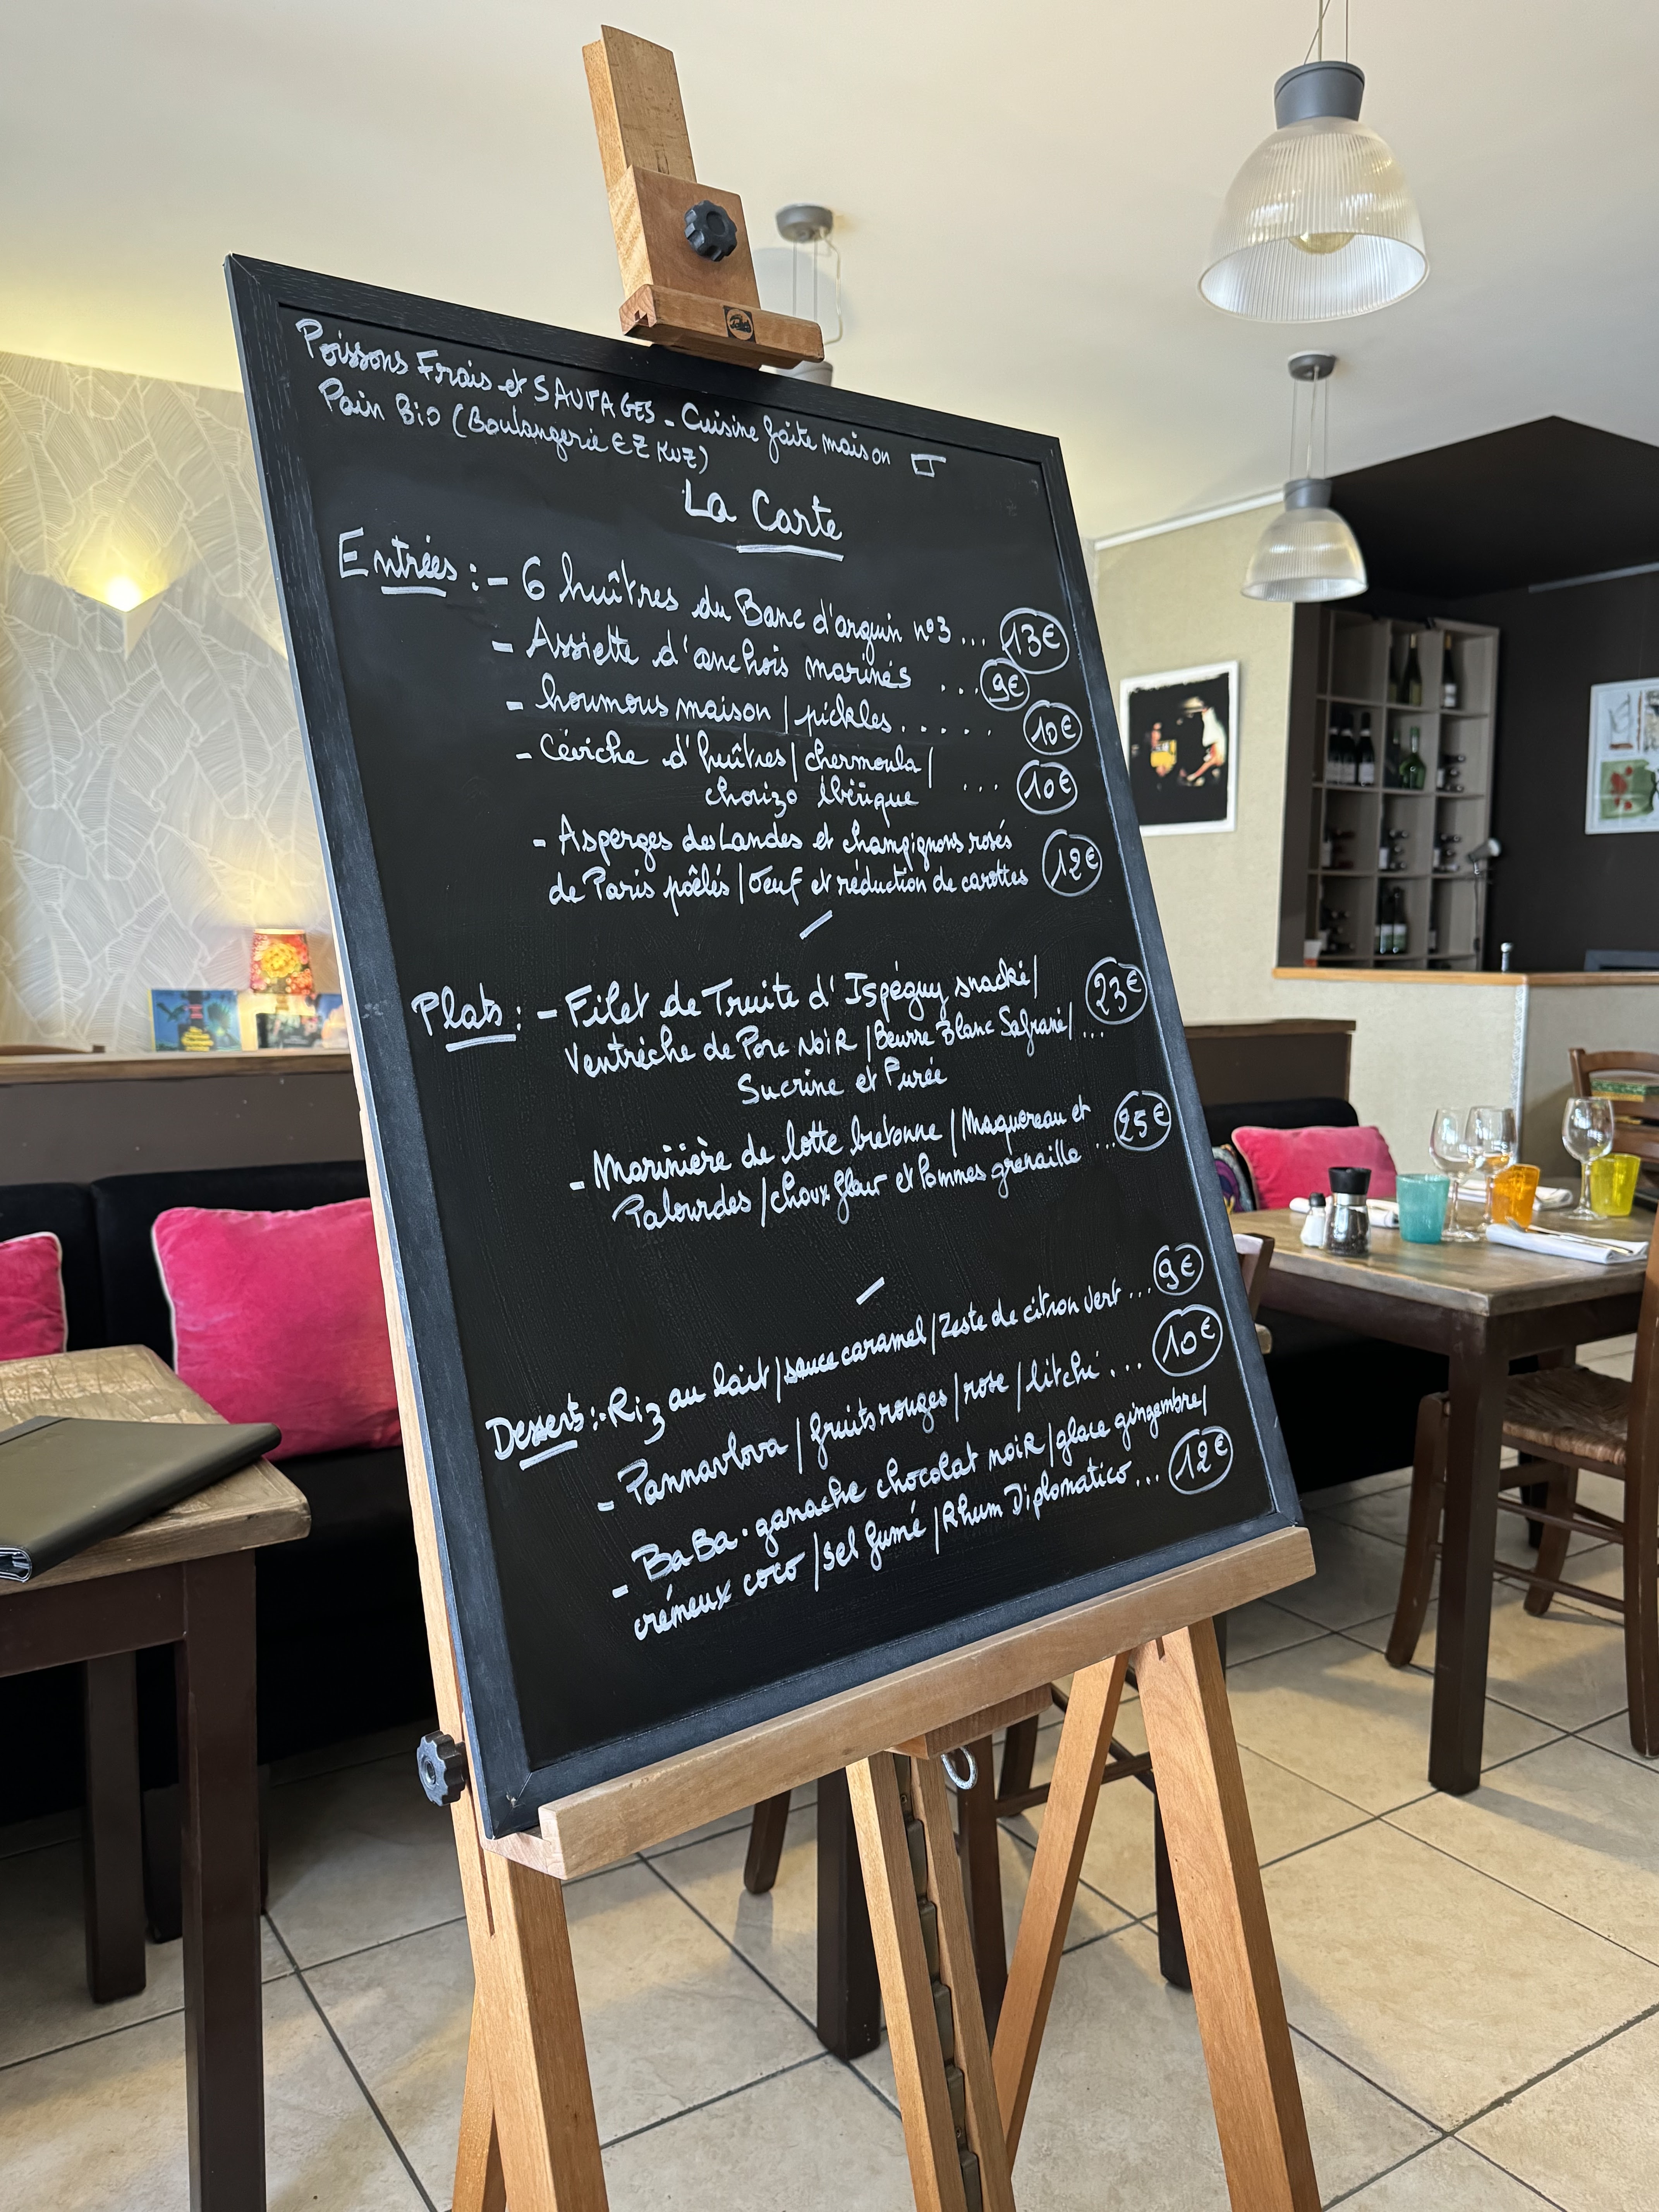 Poissons Frais et SAUVAGES - Cuisine faite maison
Pain Bio (Boulangerie EZ KUZ)
La Carte
Entrées : - 6 huîtres du Banc d'arguin n°3 ... 13€
- Assiette d'anchois marinés ... 9€
- houmous maison / pickles. . . . . 10€
- Céviche d'huîtres / chermoula /
chorizo ibérique ... 10€
- Asperges des Landes et champignons rosés
de Paris poêlés / Oeuf et réduction de carottes 12€
Plats : - Filet de Truite d'Ispéguy snacké / 23€
Ventrèche de Porc NOIR / Beurre Blanc Safrané / ...
Sucrine et Purée
- Marinière de lotte bretonne / Maquereau et
Palourdes / choux fleur et Pommes grenaille ... 25€
Desserts : - Riz au lait / sauce caramel / Zeste de citron vert ... 9€
- Pannavlova / fruits rouges / rose / litchi ... 10€
- BaBa. ganache chocolat noiR / glace gingembre /
crémeux coco / sel fumé / Rhum Diplomatico ... 12€